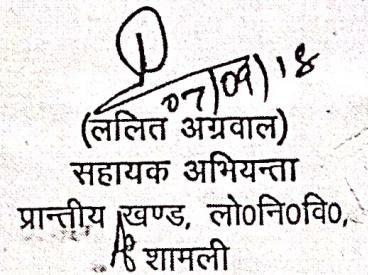 07/09/18
(ललित अग्रवाल)
सहायक अभियन्ता
प्रान्तीय खण्ड, लो०नि०वि०,
शामली